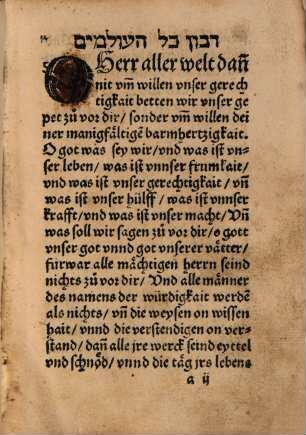 רבון כל העולמים
O Herr aller welt dañ
nit vm̃ willen vnser gerech
tigkait betten wir vnser ge
pet zů vor dir/ sonder vm̃ willen dei
ner manigfältige barmhertzigkait.
O got was sey wir/ vnd was ist vn-
ser leben/ was ist vnnser frumkait/
vnd was ist vnser gerechtigkait/ vñ
was ist vnser hülff/ was ist vnnser
krafft/ vnd was ist vnser macht/ Vñ
was soll wir sagen zů vor dir/ o gott
vnser got vnnd got vnserer vätter/
fürwar alle mächtigen herrn seind
nichts zů vor dir/ Vnd alle männer
des namens der würdigkait werdẽ
als nichts/ vñ die weysen on wissen
hait/ vnnd die verstendigen on ver-
stand/ dañ alle jre werck seind eyttel
vnd schnöd/ vnnd die täg jrs lebens
a ij